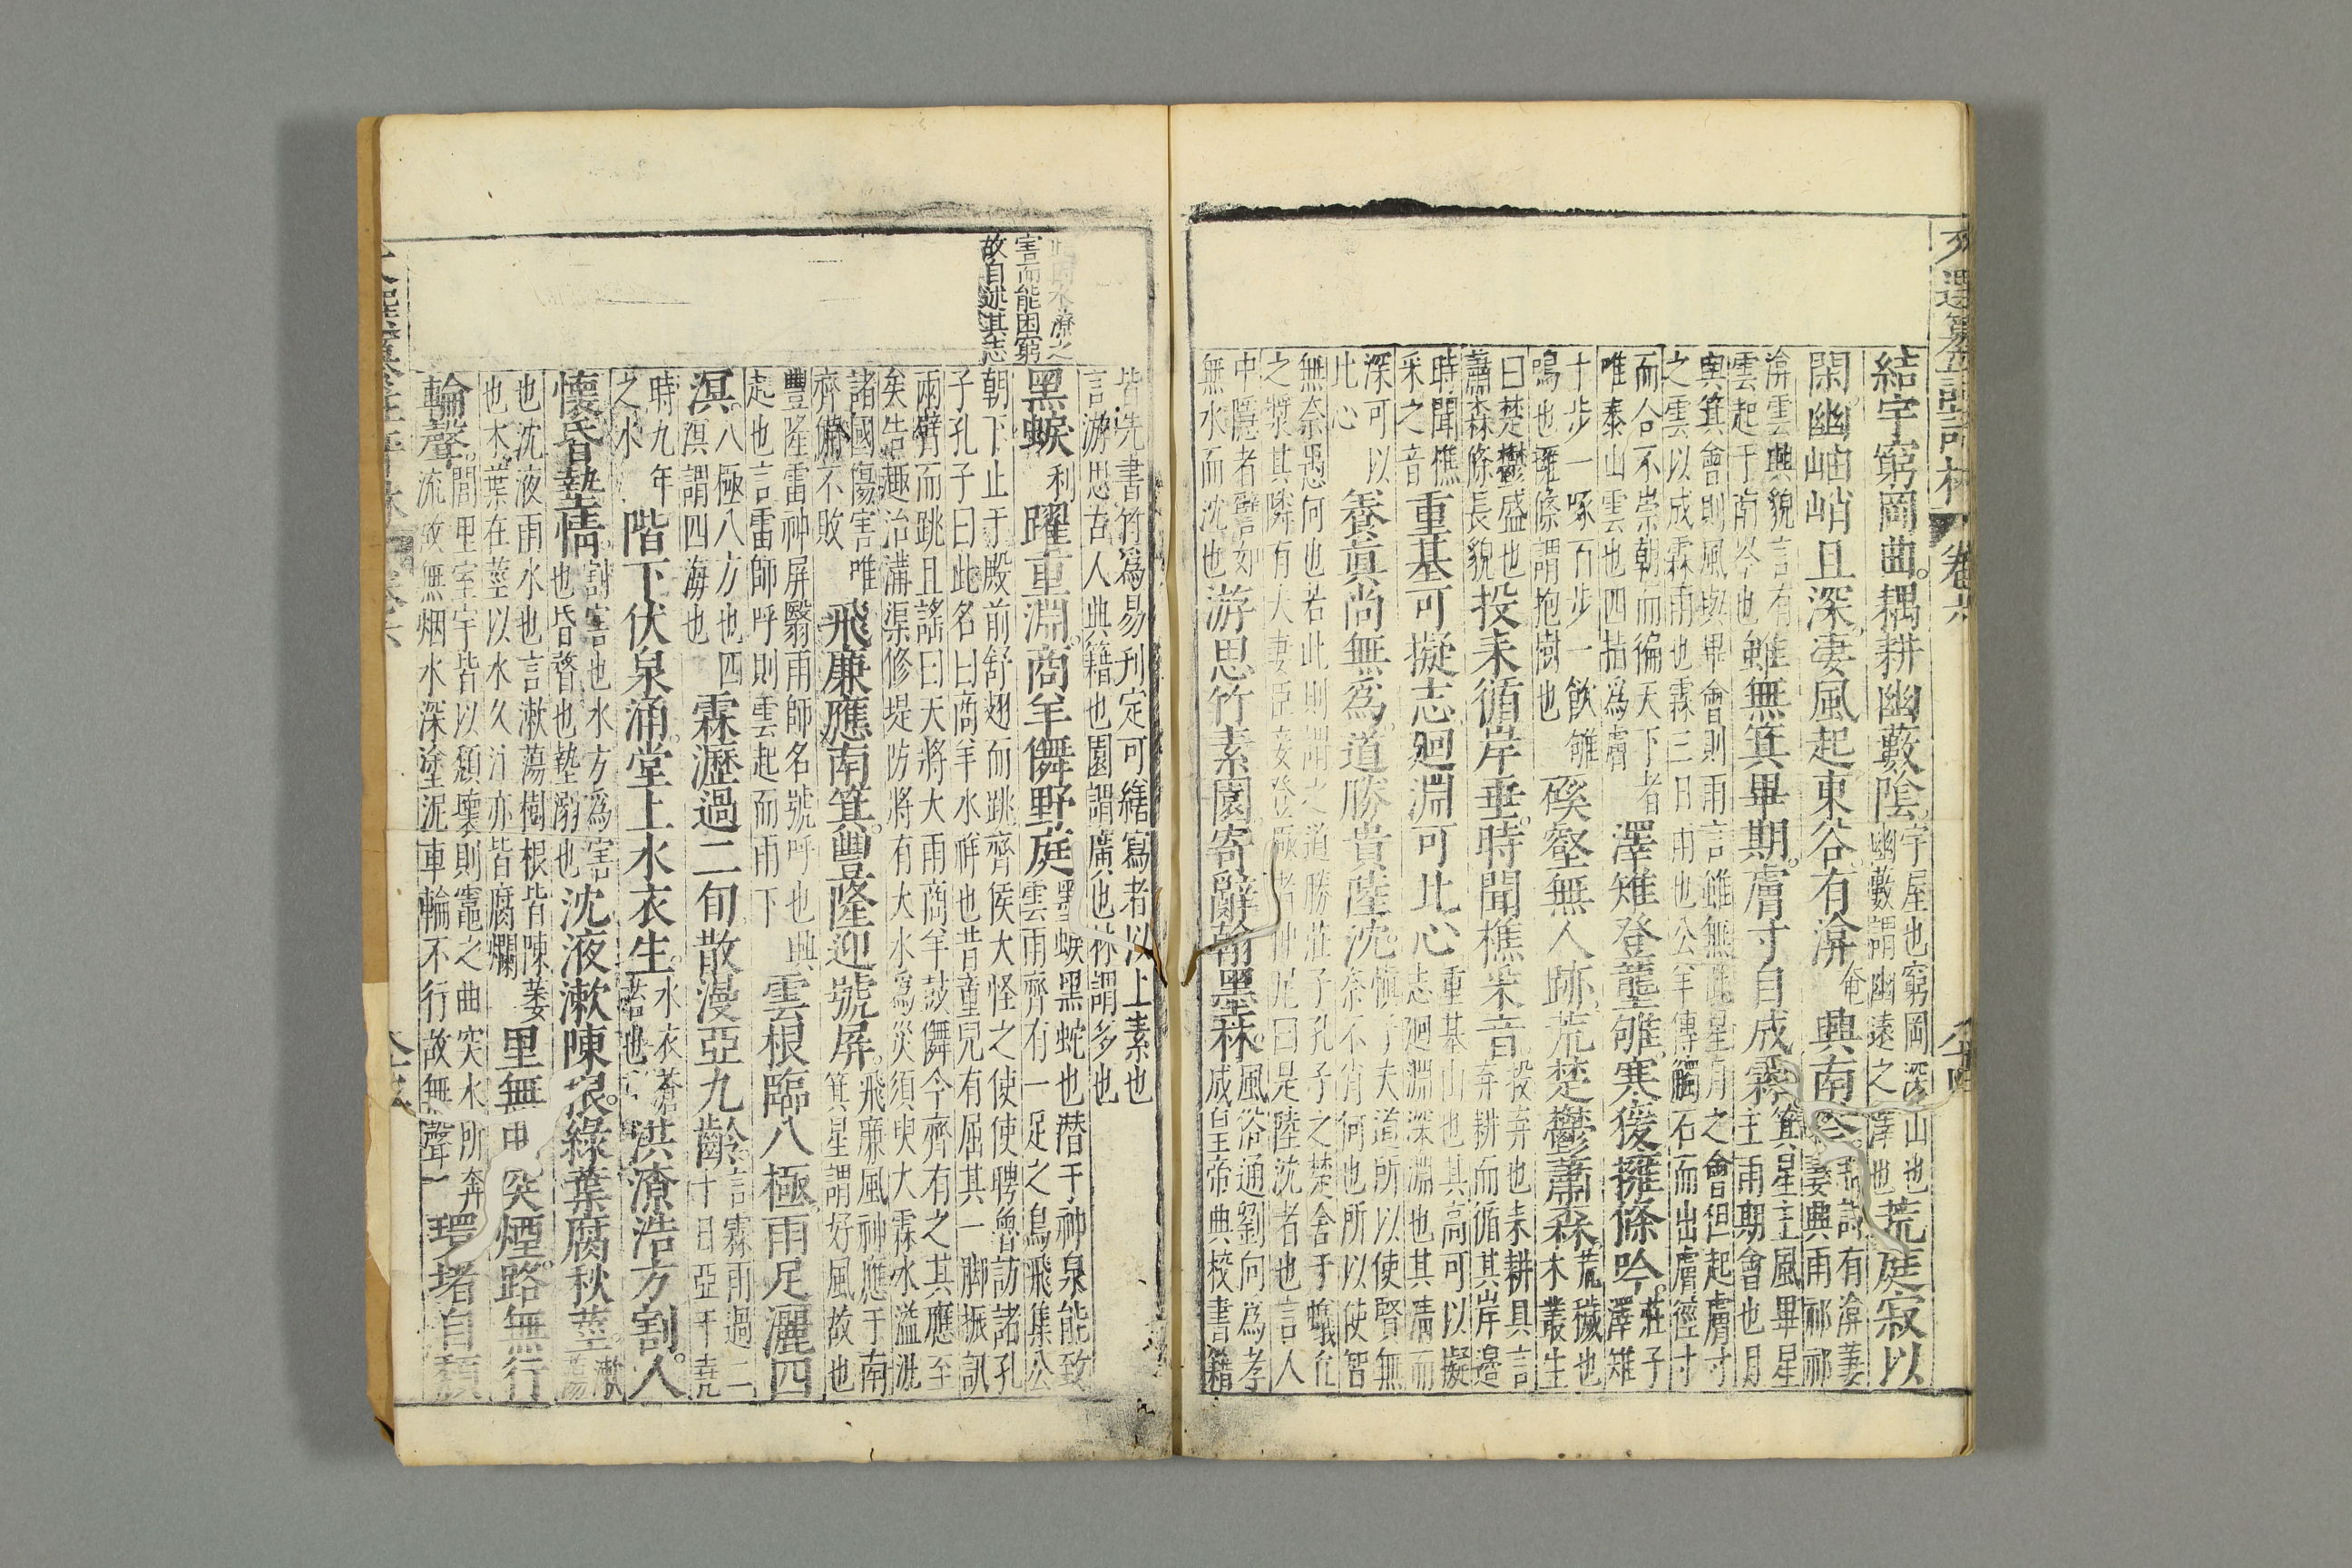 文選纂註評林 卷六 八十四
結宇窮岡曲。耦耕幽藪陰。宇屋也窮岡深山也幽藪謂幽遠之澤也荒庭寂以
閑。幽岫峭且深。淒風起東谷。有渰奄興南岑。毛詩有渰萋萋興雨祁祁
渰雲興貌言有雲起于南岑也雖無箕畢期。膚寸自成霖。箕星主風畢星主雨期會也月
與箕會則風與畢會則雨言雖無此星月之會但起膚寸之雲以成霖雨也霖三日雨也公羊傳觸石而出膚徑寸
而合不崇朝而徧天下者唯泰山雲也四指為膚澤雉登壟雊。寒猨擁條吟。莊子澤雉
十步一啄百步一飲雊鳴也擁條謂抱樹也磎壑無人跡。荒楚鬱蕭森。荒穢也木叢生
曰楚鬱盛也蕭森條長貌投耒循岸垂。時聞樵采音。投弃也耒耕具言弃耕而循其岸邉
時聞樵采之音重基可擬志迴淵可比心。重基山也其高可以擬志迴淵深淵也其清而
深可以比心養眞尚無爲。道勝貴陸沈。慎子夫道所以使賢無奈不肖何也所以使智
無奈愚何也若此則謂之道勝莊子孔子之楚舍于蟻丘之漿其隣有夫妻臣妾登極者仲尼曰是陸沈者也言人
中隱者譬如無水而沈也游思竹素園。寄辭翰墨林。風俗通劉向為孝成皇帝典校書籍
皆先書竹爲易刊定可繕寫者以上素也言游思古人典籍也園謂廣也林謂多也
此因水潦之
害而能困窮
故自述其志
黑蜧利躍重淵。商羊儛野庭墨蜧黑蛇也潜于神泉能致雲雨齊有一足之鳥飛集公
朝下止于殿前舒翅而跳齊侯大怪之使使聘魯訪諸孔子孔子曰此名曰商羊水祥也昔童兒有屈其一脚振訊
兩臂而跳且謠曰天將大雨商羊鼓儛今齊有之其應至矣告趣治溝渠修堤防將有大水爲災須臾大霖水溢泄
諸國傷害唯齊備不敗飛廉應南箕。豐隆迎號屏。飛廉風神應于南箕星謂好風故也
豐隆雷神屏翳雨師名號呼也興起也言雷師呼則雲起而雨下雲根臨八極。雨足灑四
溟。八極八方也四溟謂四海也霖瀝過二旬散漫亞九齡。言霖雨過二十日亞于堯
時九年之水階下伏泉涌。堂上水衣生。水衣蒼苔也洪潦浩方割。人
懷昏墊情。割害也水方為害也昏瞀也墊溺也沈液漱陳根。綠葉腐秋莖。漱蕩
也沈液雨水也言漱蕩樹根皆陳萎也木葉在莖以水久汁亦皆腐爛里無曲突煙。路無行
輪聲。閭里室宇皆以頹壞則竈之曲突水所奔流故無烟水深塗泥車輪不行故無聲環堵自頹